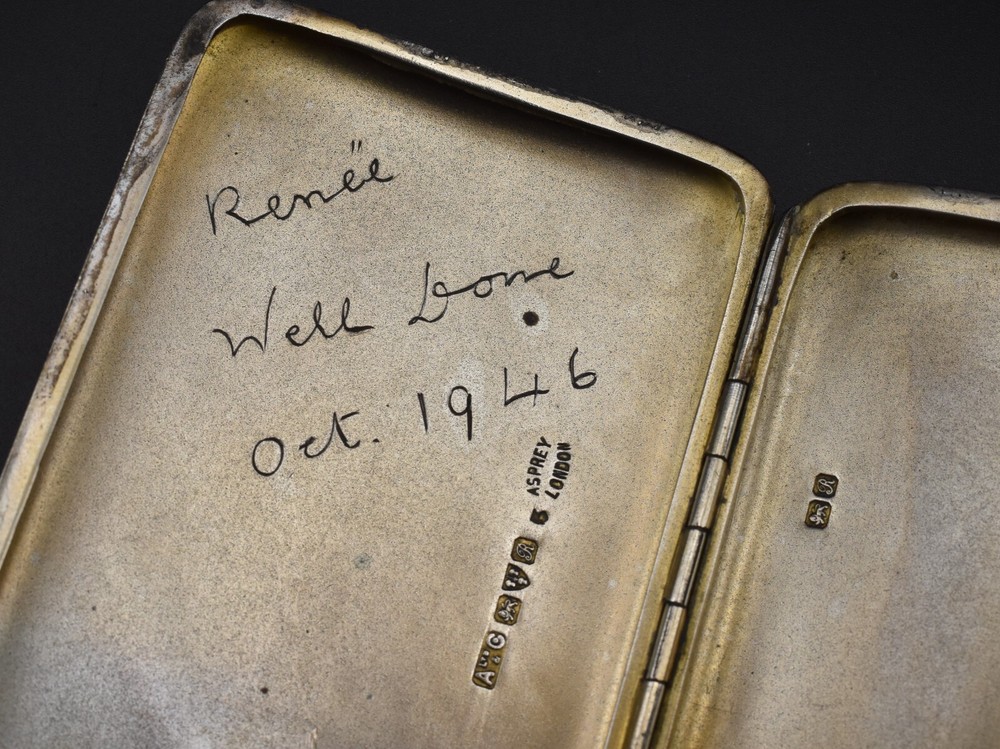 Renëe
Well Done
Oct. 1946
ASPREY
LONDON